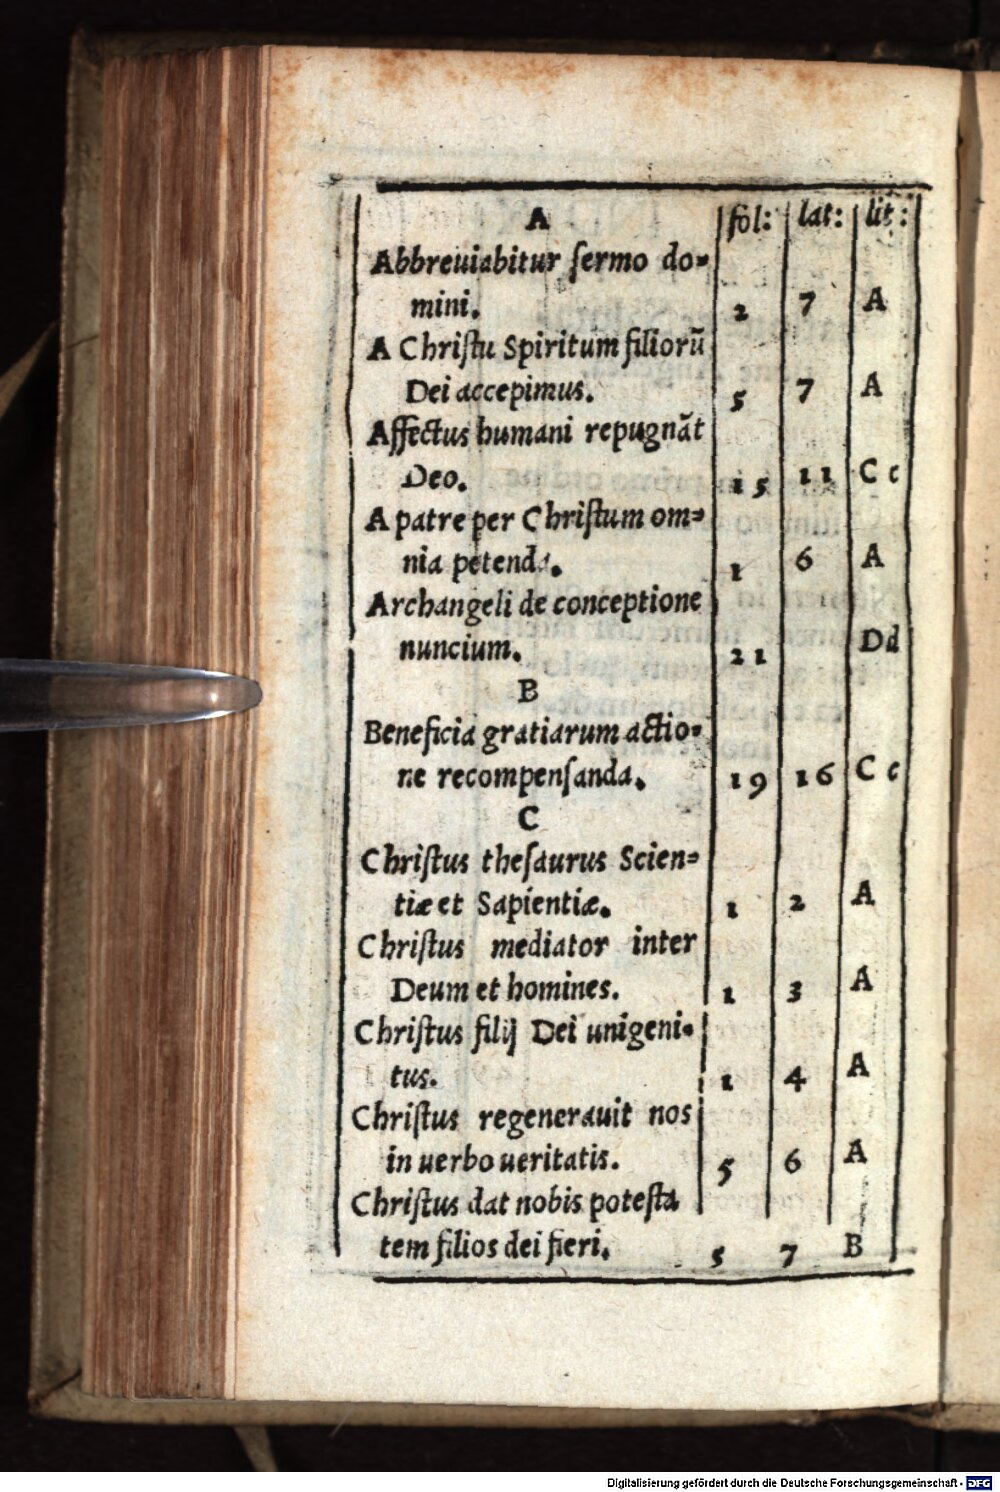 A fol: lat: lit:
Abbreuiabitur ſermo do-
mini. 2 7 A
A Chriſtu Spiritum filiorũ
Dei accepimus. 5 7 A
Affectus humani repugnãt
Deo. 15 11 C c
A patre per Chriſtum om-
nia petenda. 1 6 A
Archangeli de conceptione
nuncium. 21 Dd
B
Beneficia gratiarum actio-
ne recompenſanda. 19 16 C c
C
Chriſtus theſaurus Scien-
tiæ et Sapientiæ. 1 2 A
Chriſtus mediator inter
Deum et homines. 1 3 A
Chriſtus filij Dei unigeni-
tus. 1 4 A
Chriſtus regenerauit nos
in uerbo ueritatis. 5 6 A
Chriſtus dat nobis poteſta
tem filios dei fieri. 5 7 B
Digitalisierung gefördert durch die Deutsche Forschungsgemeinschaft - DFG